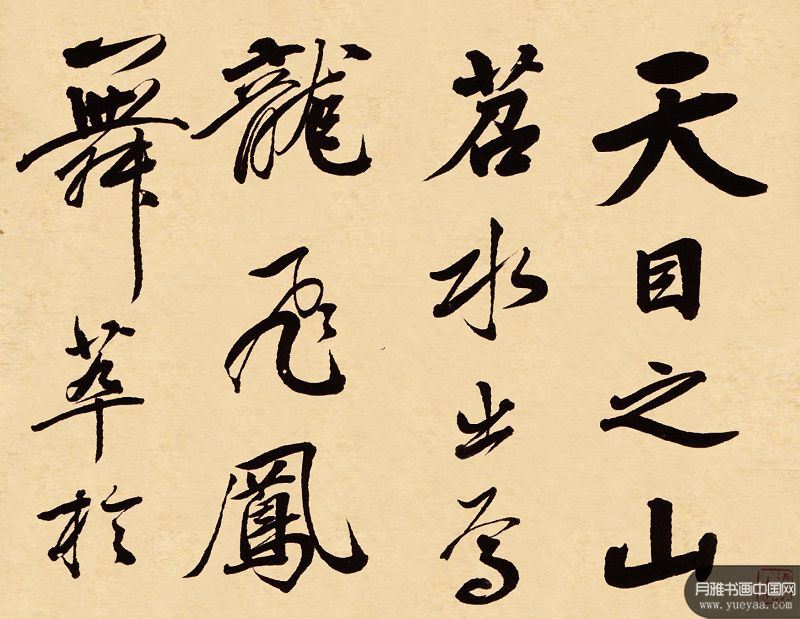 天目之山
苕水出焉
龍飛鳳
舞萃於
月雅书画中国网
www.yueyaa.com